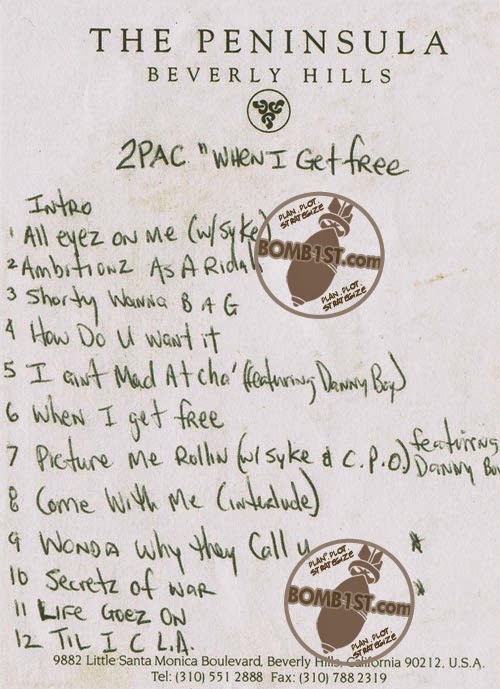 THE PENINSULA
BEVERLY HILLS
2PAC "WHEN I Get free
INTRO
1 All eyez ON Me (w/Syke)
2 Ambitionz As A Ridah
3 Shorty Wanna B A G
4 How Do U want it
5 I aint Mad At cha' (featuring Danny Boy)
6 When I get free
7 Picture Me Rollin (w/ Syke & C.P.O.) featuring Danny Boy
8 Come With Me (interlude)
9 WONDA Why they Call U *
10 Secretz of WAR *
11 LIFE GOEZ ON
12 TIL I C L.A.
PLAN. PLOT. STRATEGIZE
BOMB1ST.com
PLAN. PLOT. STRATEGIZE
PLAN. PLOT. STRATEGIZE
BOMB1ST.com
PLAN. PLOT. STRATEGIZE
9882 Little Santa Monica Boulevard, Beverly Hills, California 90212, U.S.A.
Tel: (310) 551 2888 Fax: (310) 788 2319